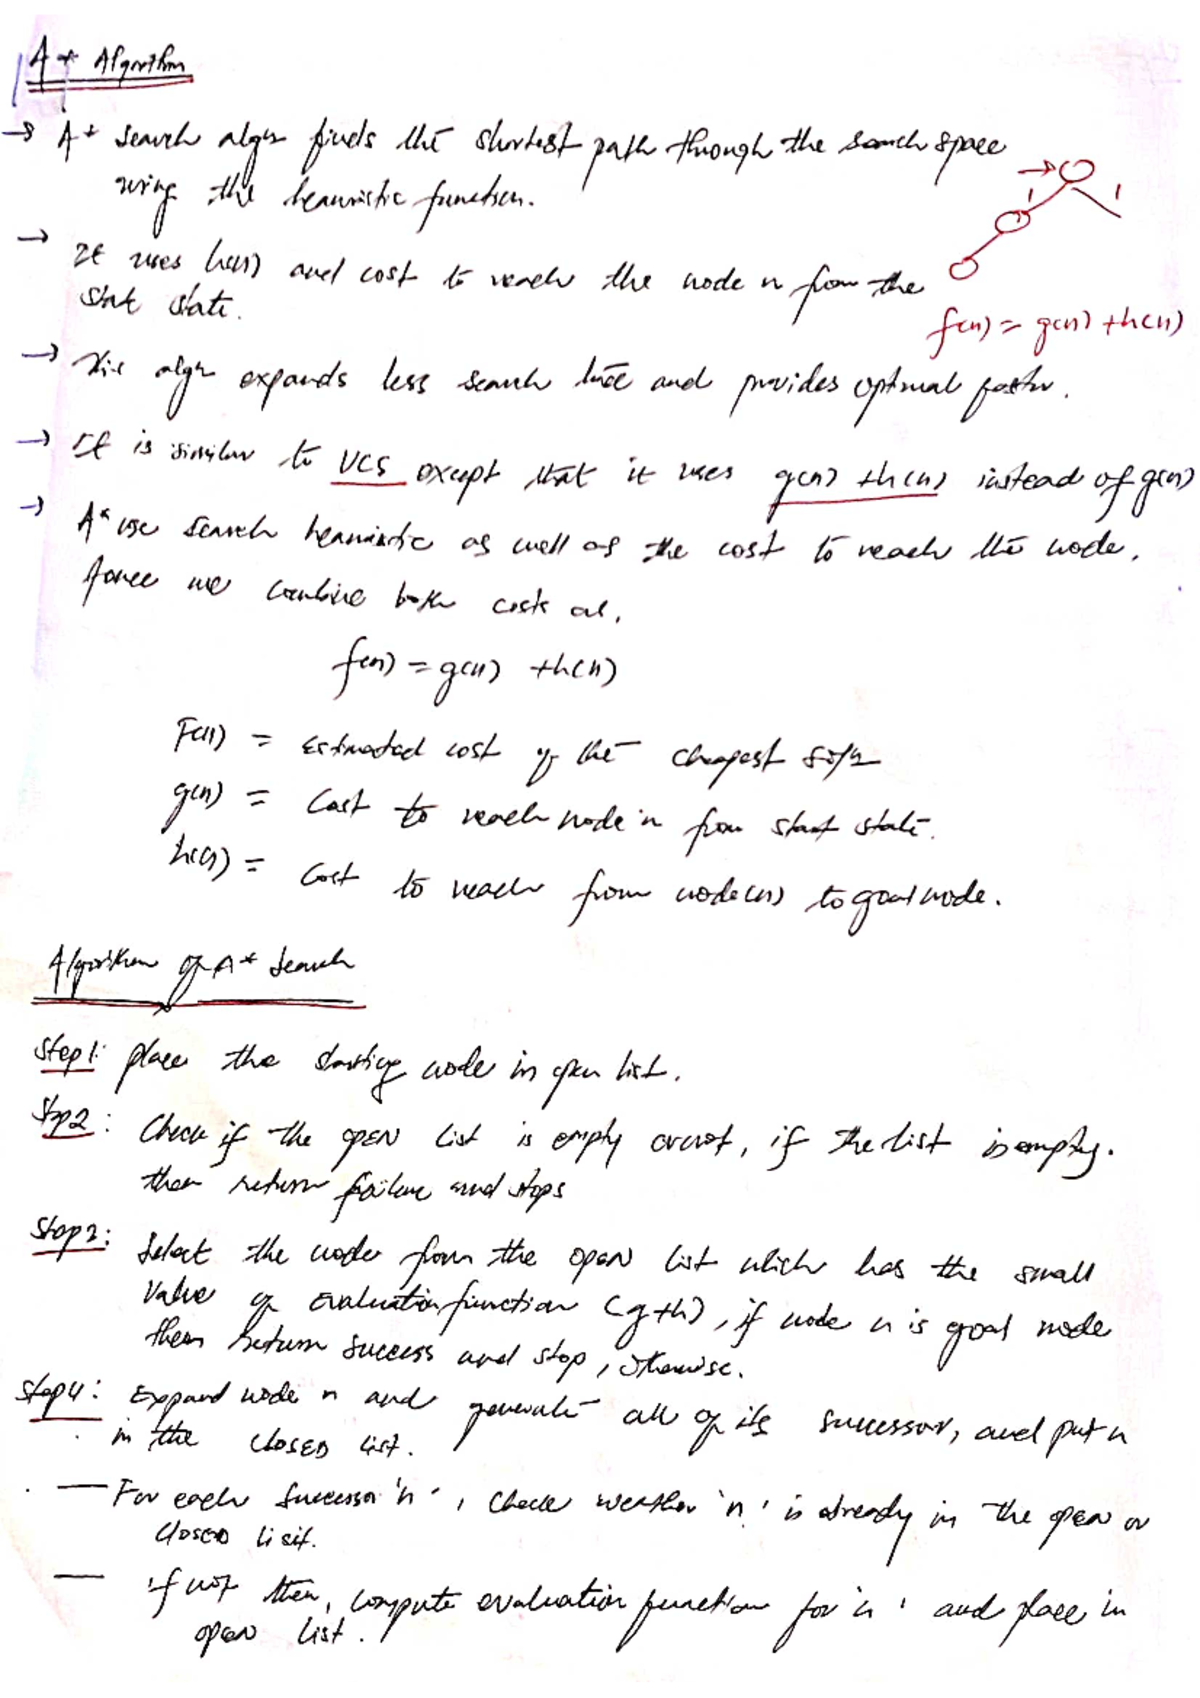 A* Algorithm
→ A* search algr finds the shortest path through the search space
using the heauristic function.
→ It uses h(n) and cost to reach the node n from the
start state.
f(n) = g(n) + h(n)
→ This algr expands less search tree and provides optimal faster.
→ It is similar to UCS except that it uses g(n) + h(n) instead of g(n)
→ A* use search heauristic as well as the cost to reach the node.
we combine both costs as,
f(n) = g(n) + h(n)
F(n) = Estimated cost of the cheapest sol/n
g(n) = Cost to reach node n from start state.
h(n) = Cost to reach from node(n) to goal node.
Algorithm of A* Search
Step 1: place the starting node in open list.
Step 2: Check if the OPEN list is empty or not, if the list is empty.
then return failure and stops
Step 3: Select the node from the OPEN list which has the small
value of evaluation function (g+h), if node n is goal node
then return success and stop, otherwise.
Step 4: Expand node n and generate all of its successor, and put n
in the CLOSED list.
— For each successor 'n', check weather 'n' is already in the open or
CLOSED list.
— if not then, compute evaluation function for n' and place in
open list.